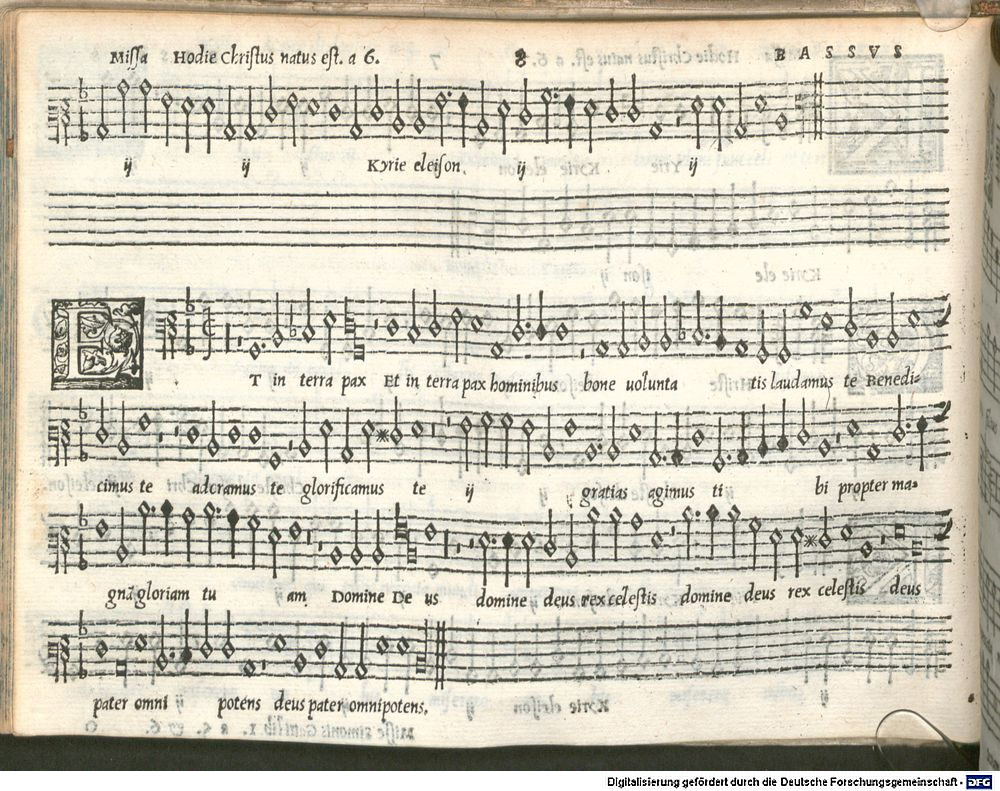 Missa Hodie Christus natus est. a 6. 8 BASSVS
ij ij Kyrie eleison. ij ij
ET in terra pax Et in terra pax hominibus bone uolunta tis laudamus te Benedi=
cimus te adoramus te glorificamus te ij gratias agimus ti bi propter ma=
gnã gloriam tu am Domine De us domine deus rex celestis domine deus rex celestis deus
pater omni ij potens deus pater omnipotens,
Digitalisierung gefördert durch die Deutsche Forschungsgemeinschaft - DFG